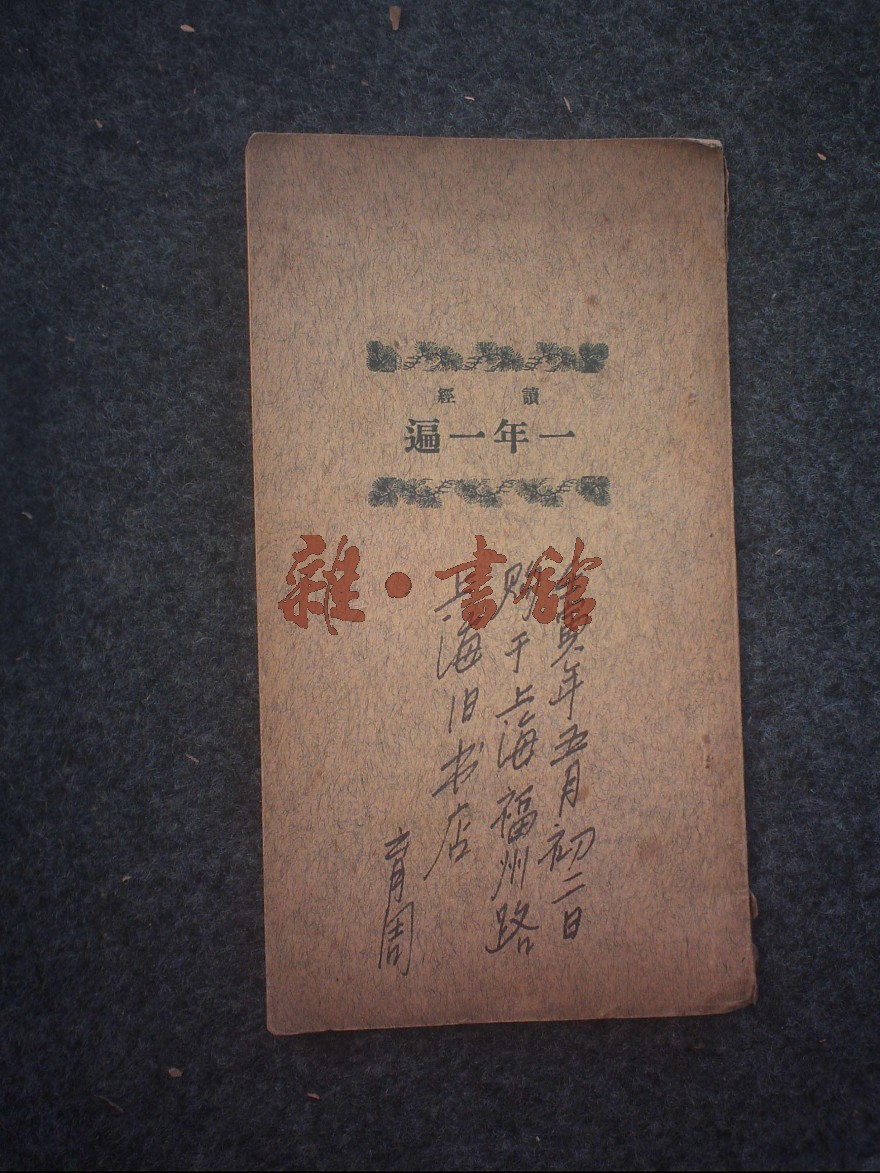 讀經
一年一遍
雜·書館
寅年五月初二日
购于上海福州路
上海旧书店
育周